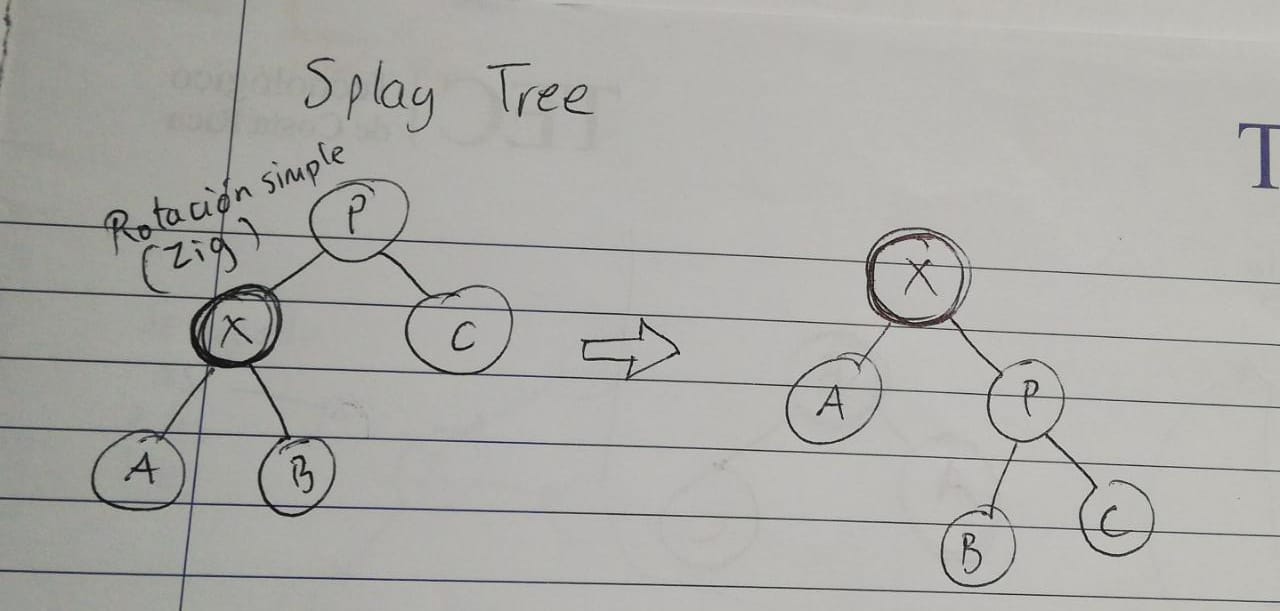 Splay Tree
Rotación simple
(Zig)
P
X
C
A
B
X
A
P
B
C
T